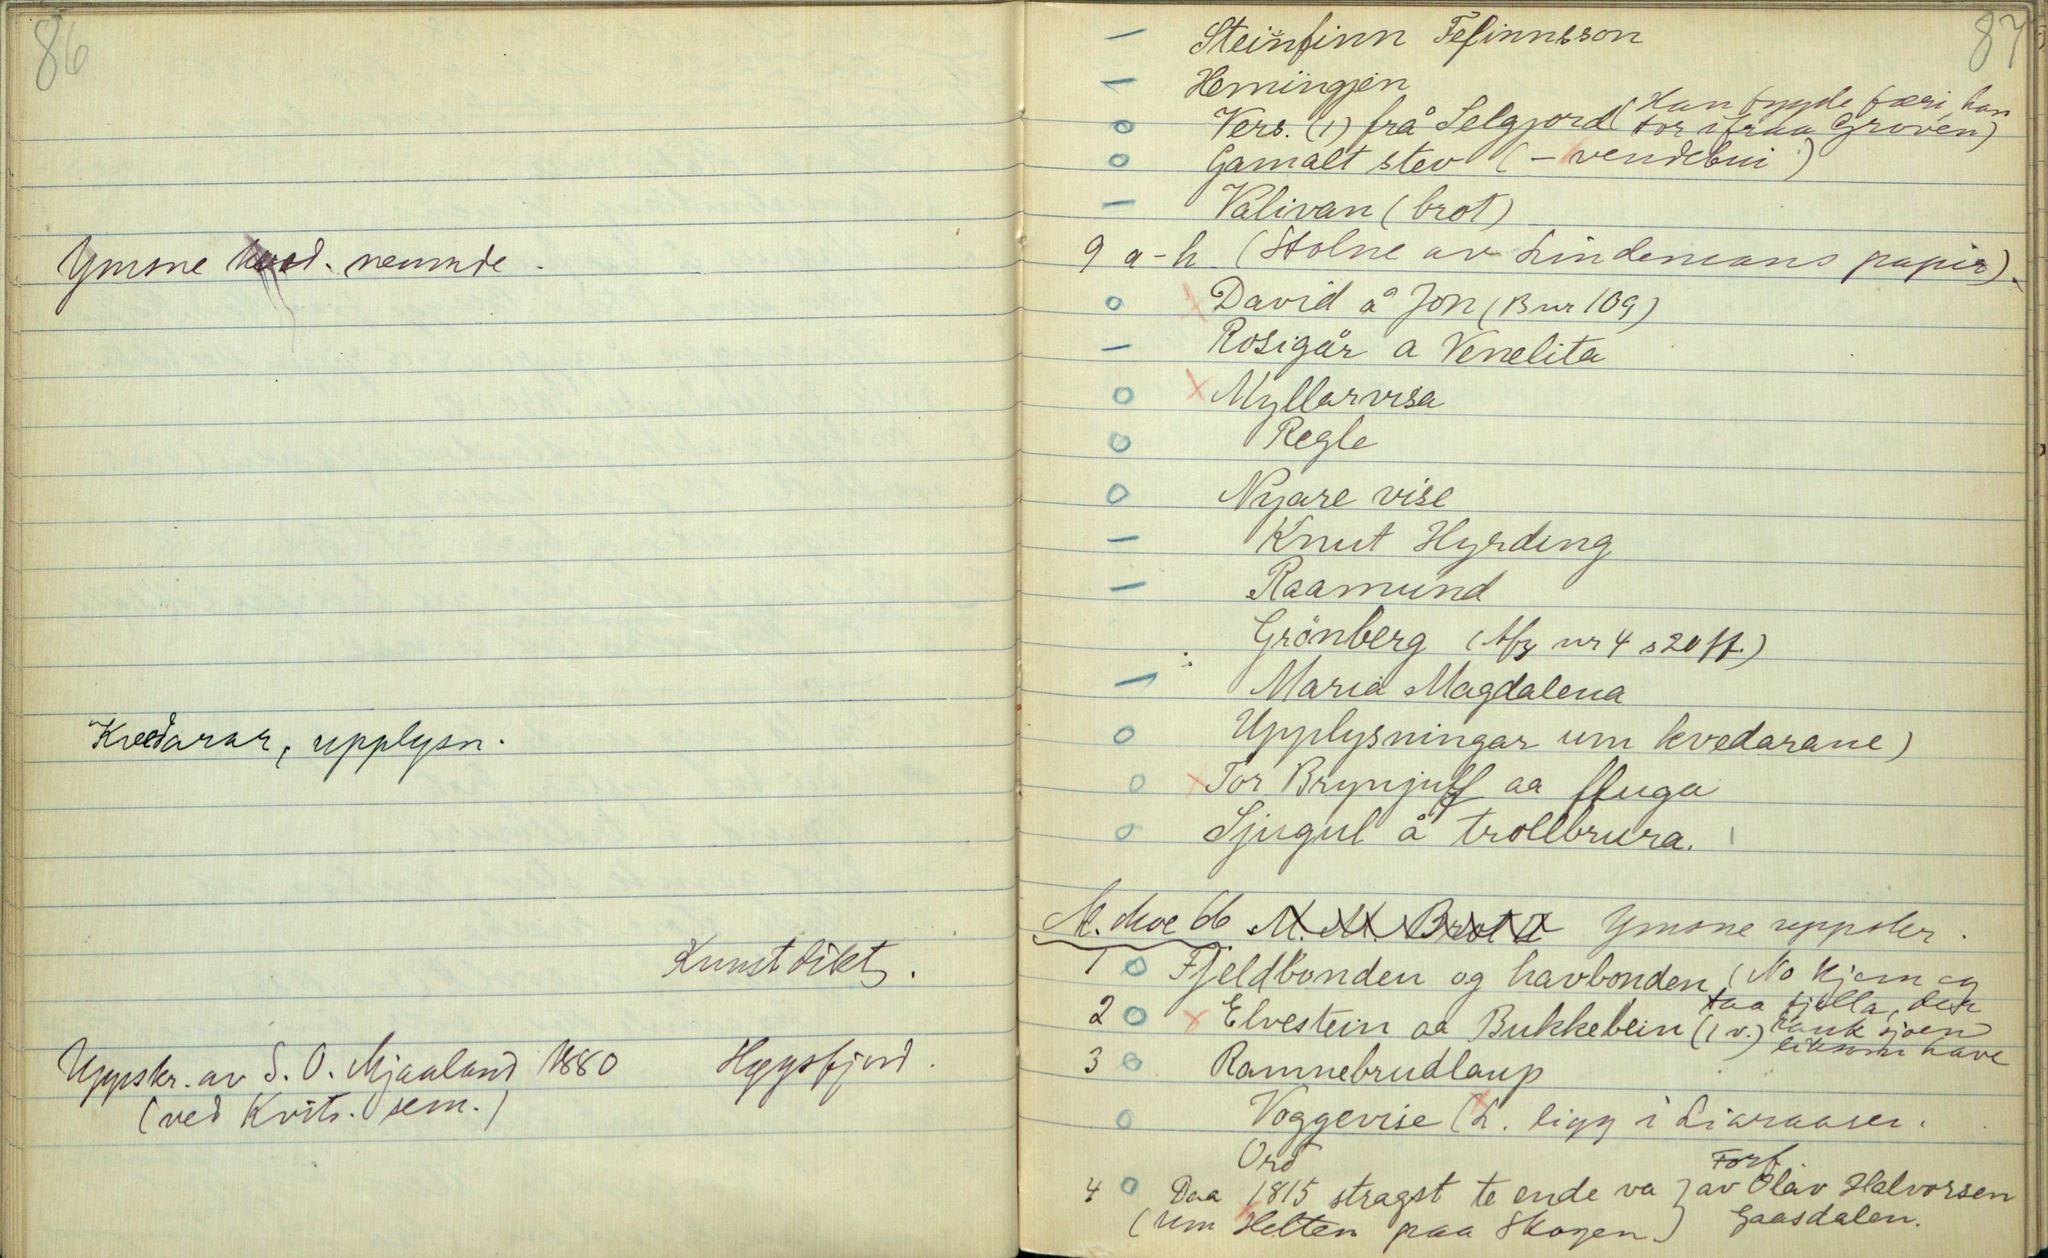 86
Ymsne kvæd. nemnde.
Kvedarar, upplysn.
Kunstdikt.
Uppskr. av S. O. Mjaaland 1880 Høgsfjord.
(ved Kvits. sem.)
87
– Steinfinn Fefinnsson
– Hemingjen
0 Vers. (1) frå Selgjord (Han bygde færi, han
for ifraa Groven)
0 Gamalt stev (– vendebui)
– Valivan (brot)
9 a-h (Stolne av Lindemans papir).
0 x David å Jon (B nr 109)
– Rosigår a Venelita
0 x Myllarvisa
0 Regle
0 Nyare vise
– Knut Hyrding
– Raamund
Grönberg (Afz nr 4 s 20 ff.)
– Maria Magdalena
0 Upplysningar um kvedarane)
0 x Tor Brynjuff aa ffuga
0 Sjugul å trollbrura.
M. Moe 66 M. M. Brot 2 Ymsne uppskr.
1 0 Fjeldbonden og havbonden (No kjem eg
taa fjella, den
2 0 x Elvestein aa Bukkebein (1 v.) rauk sjoen
liksom have
3 0 Ramnebrudlaup
0 Voggevise (L. ligg i Liaraasen.
Ord
4 0 Daa 1815 stragst te ende va } Forf. av Olav Halvorsen
(um Helten paa Skogen) Gaasdalen.